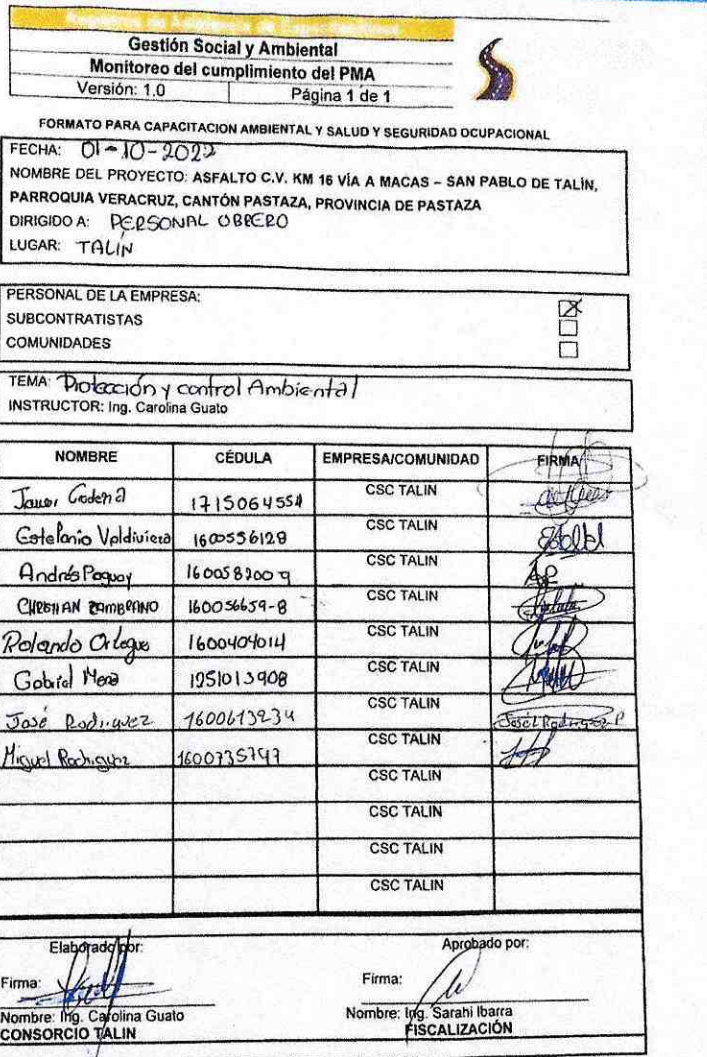 Gestión Social y Ambiental
Monitoreo del cumplimiento del PMA
Versión: 1.0 Página 1 de 1
FORMATO PARA CAPACITACION AMBIENTAL Y SALUD Y SEGURIDAD OCUPACIONAL
FECHA: 01-10-2022
NOMBRE DEL PROYECTO: ASFALTO C.V. KM 16 VÍA A MACAS – SAN PABLO DE TALÍN,
PARROQUIA VERACRUZ, CANTÓN PASTAZA, PROVINCIA DE PASTAZA
DIRIGIDO A: PERSONAL OBRERO
LUGAR: TALIN
PERSONAL DE LA EMPRESA:
SUBCONTRATISTAS
COMUNIDADES
TEMA: Protección y control Ambiental
INSTRUCTOR: Ing. Carolina Guato
NOMBRE CÉDULA EMPRESA/COMUNIDAD FIRMA
Cadena CSC TALIN
Estefania Valdivieza 1600556129 CSC TALIN
Andrés Paguay CSC TALIN
CHRISTIAN ZAMBRANO 160056659-8 CSC TALIN
Rolando Ortega 1600404014 CSC TALIN
Gabriel Mena CSC TALIN
José Rodriguez 1600613234 CSC TALIN José L Rodriguez P
Miguel Rodriguez CSC TALIN
CSC TALIN
CSC TALIN
CSC TALIN
CSC TALIN
Elaborado por: Aprobado por:
Firma: Firma:
Nombre: Ing. Carolina Guato Nombre: Ing. Sarahi Ibarra
CONSORCIO TALIN FISCALIZACIÓN